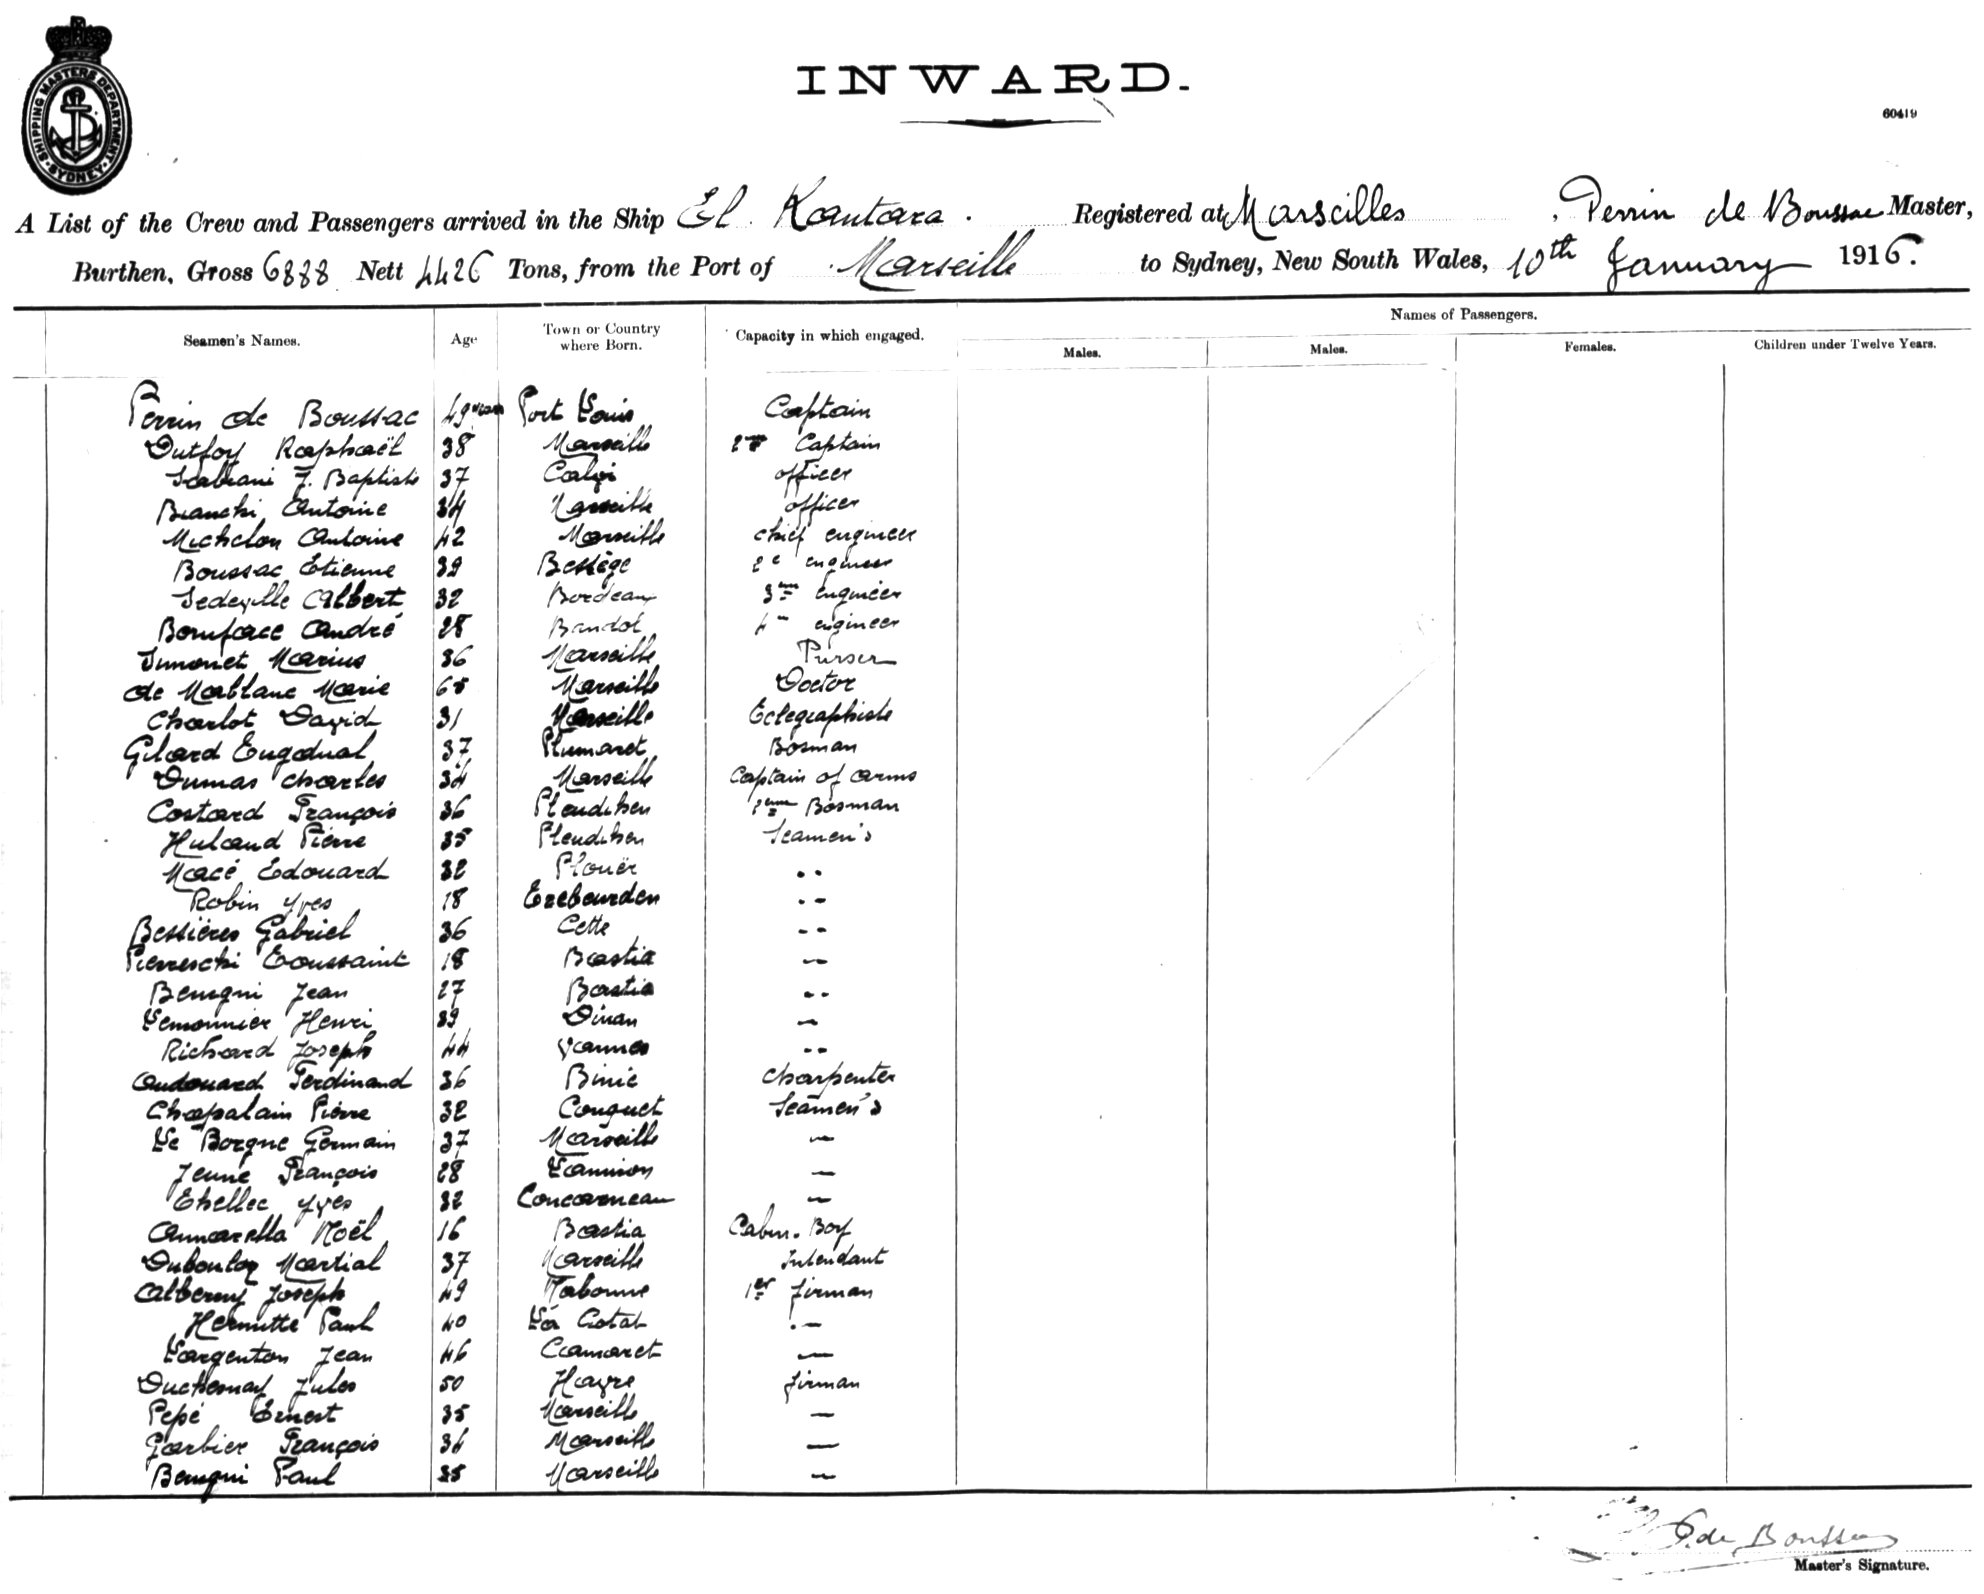 SHIPPING MASTERS DEPARTMENT. SYDNEY
INWARD.
60419
A List of the Crew and Passengers arrived in the Ship El Kantara. Registered at Marseilles, Perrin de Boussac Master,
Burthen, Gross 6888 Nett 4426 Tons, from the Port of Marseille to Sydney, New South Wales, 10th January 1916.
Names of Passengers.
Seamen's Names. Age Town or Country where Born. Capacity in which engaged. Males. Males. Females. Children under Twelve Years.
Perrin de Boussac 49 years Port Louis Captain
Dutfoy Raphaël 38 Marseille 2me Captain
J. Baptiste 37 Calvi officer
Bianchi Antoine 34 Marseille officer
Michelon Antoine 42 Marseille chief engineer
Boussac Etienne 39 Bessège 2e engineer
Sedeville Albert 32 Bordeaux 3me engineer
Boniface André 28 Bandol 4me engineer
Simonet Marius 36 Marseille Purser
de Mablanc Marie 65 Marseille Doctor
Charlot David 31 Marseille Telegraphiste
Gilard Tugdual 37 Plumaret Bosman
Dumas charles 34 Marseille Captain of arms
Costard François 36 Pleudihen 2eme Bosman
Hulaud Pierre 35 Pleudihen Seamen's
Macé Edouard 32 Plouër ..
Robin Yves 18 Trebeurden .-
Bessières Gabriel 36 Cette --
Pierreschi Toussaint 18 Bastia --
Benigni Jean 27 Bastia --
Lemonnier Henri 39 Dinan --
Richard Joseph 44 Vannes --
Audouard Ferdinand 36 Binic charpenter
Chapalain Pierre 32 Conquet Seamen's
Le Borgne Germain 37 Marseille --
Jeune François 28 Lannion --
Ehellec Yves 32 Concarneau --
Annarella Noël 16 Bastia Cabin-Boy
Dubouloz Martial 37 Marseille Intendant
Alberny Joseph 49 Narbonne 1er firman
Hermitte Paul 40 La Ciotat .-
Largenton Jean 46 Camaret --
Duchesnay Jules 50 Havre firman
Pepé Ernest 35 Marseille --
Garbier François 34 Marseille --
Benigni Paul 35 Marseille --
P. de Boussac
Master's Signature.